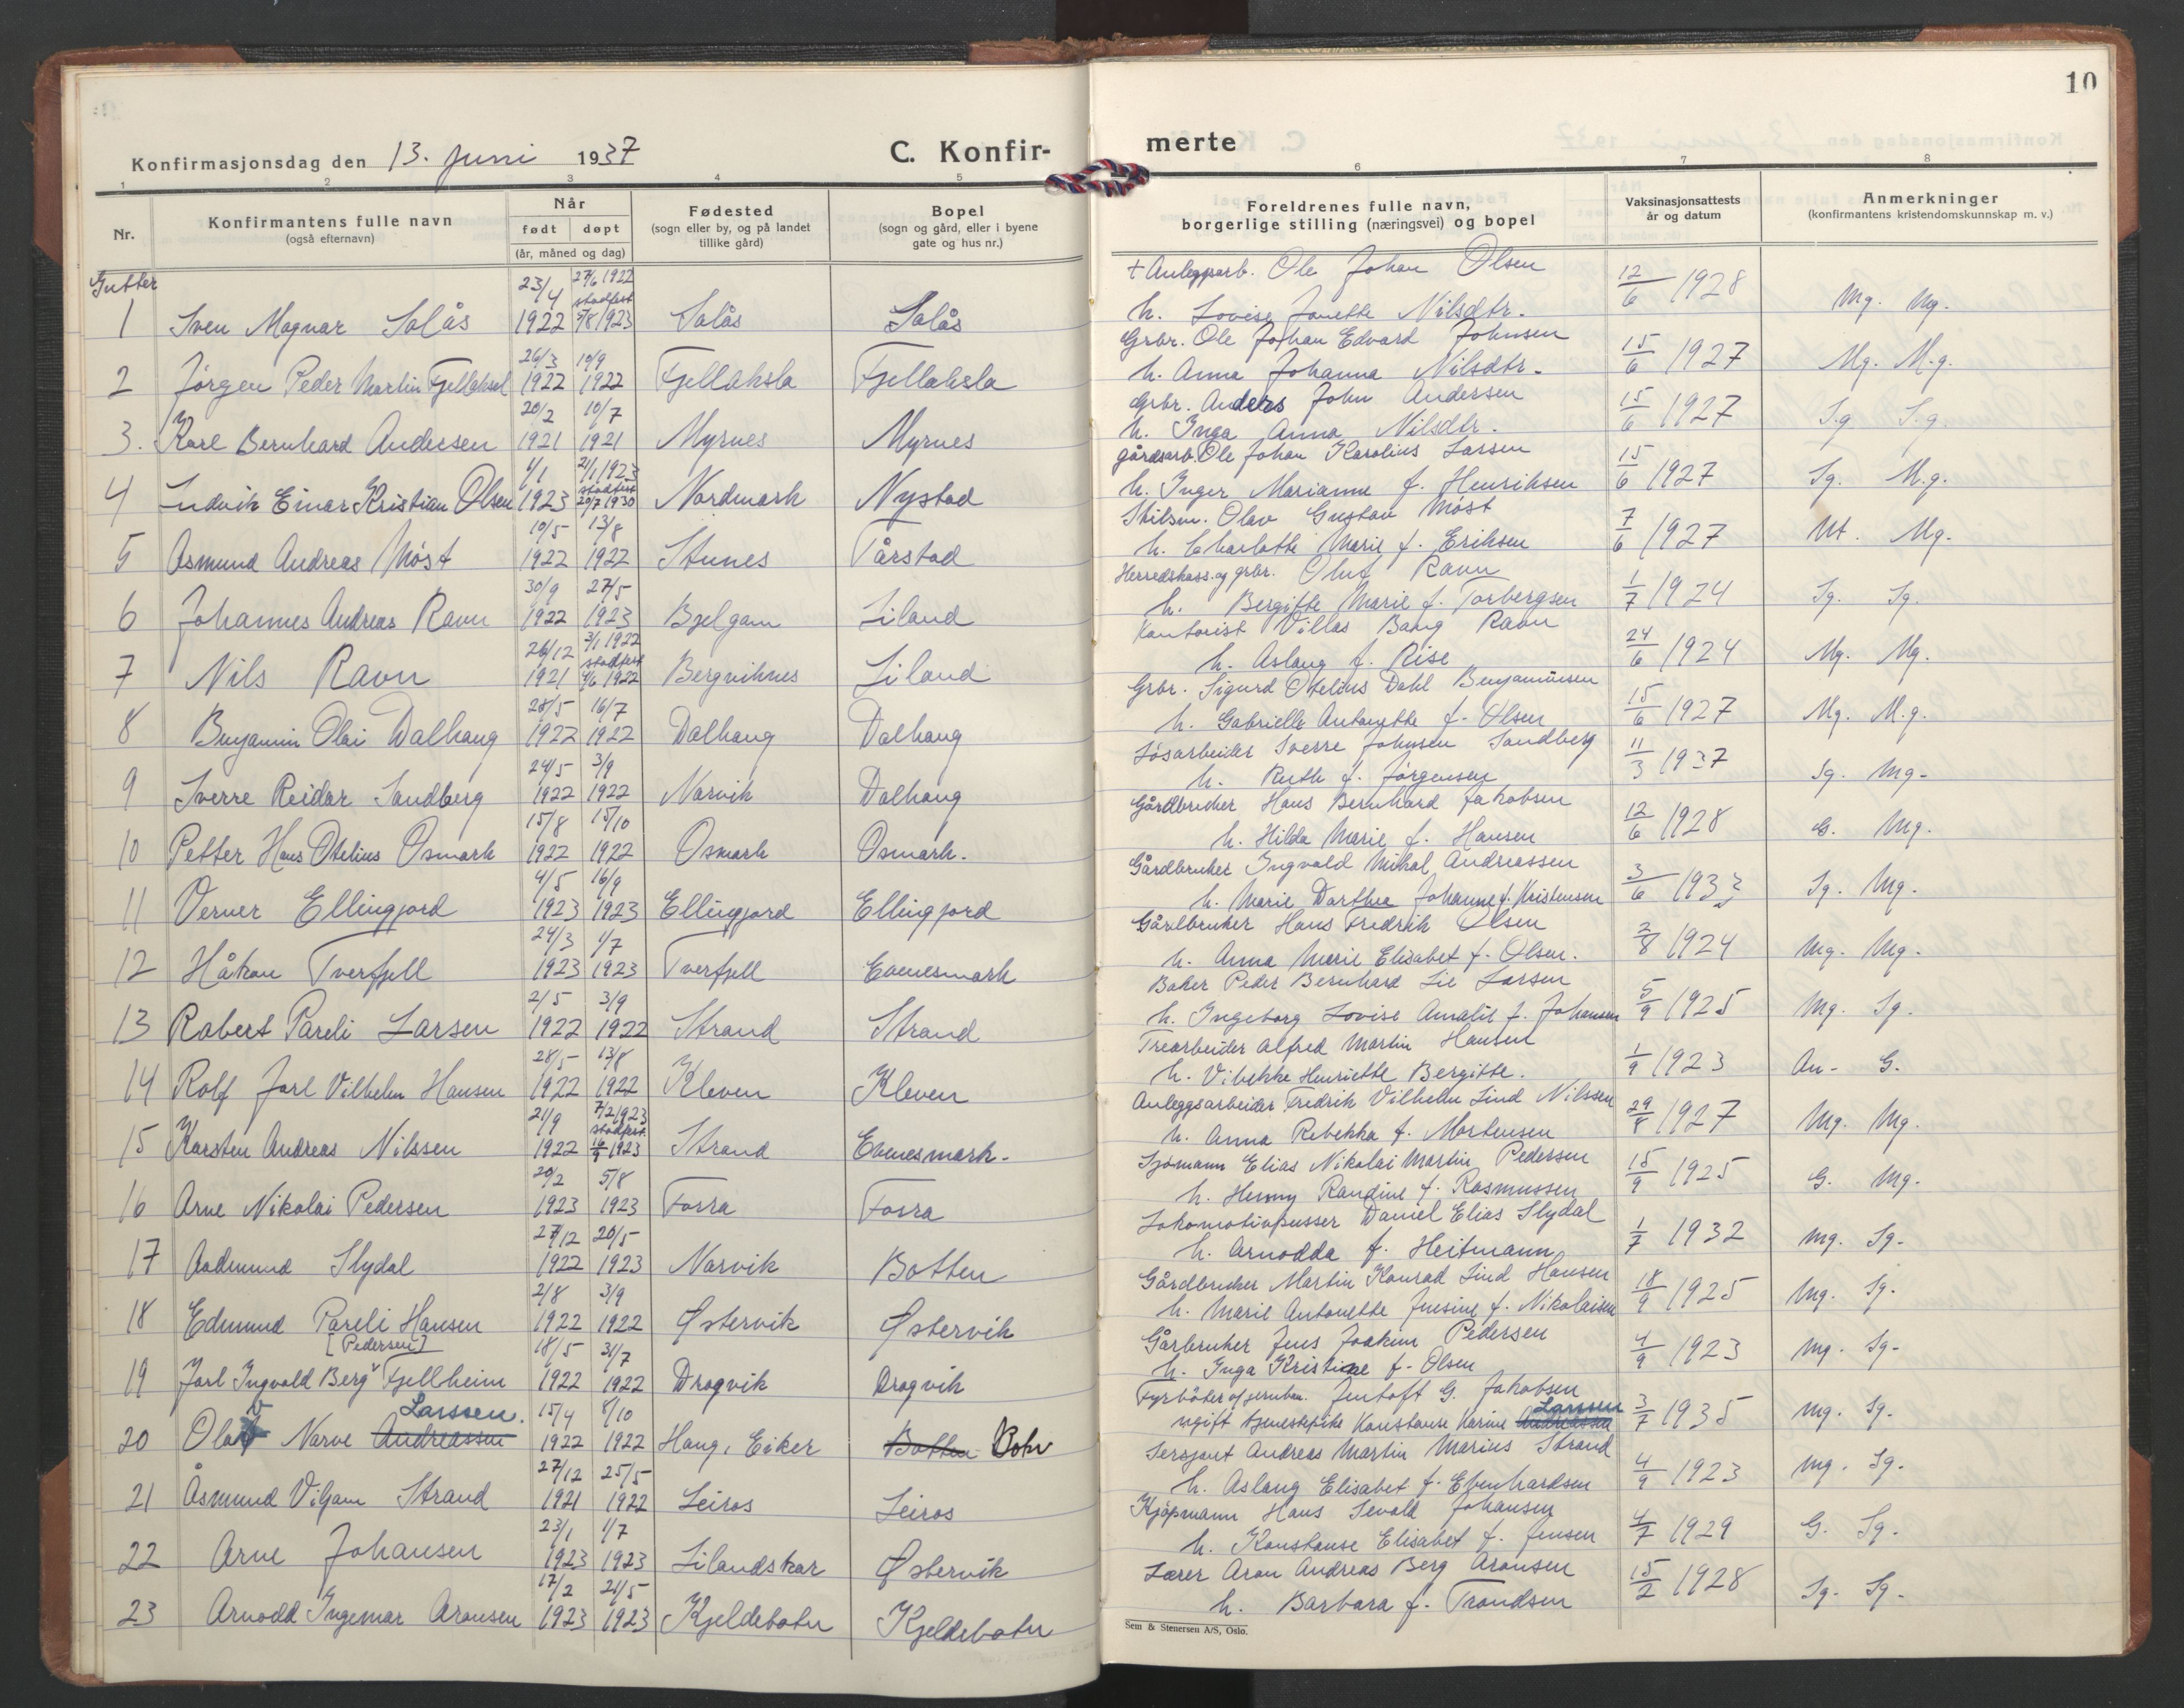 10
Konfirmasjonsdag den 13. juni 1937
C. Konfir-
merte
1 2 3 4 5 6 7 8
Nr.
Konfirmantens fulle navn
(også efternavn)
Når
født døpt
(år, måned og dag)
Fødested
(sogn eller by, og på landet
tillike gård)
Bopel
(sogn og gård, eller i byene
gate og hus nr.)
Foreldrenes fulle navn,
borgerlige stilling (næringsvei) og bopel
Vaksinasjonsattests
år og datum
Anmerkninger
(konfirmantens kristendomskunnskap m. v.)
Gutter
23/4 27/6 1922 stadfest + Anleggsarb. Ole Johan Olsen 12/6 1928
1 Sven Magnar Solås 1922 5/8 1923 Solås Solås h. Lovise Janette Nilsdtr. Mg. Mg.
26/3 10/9 Grbr. Ole Johan Edvard Johnsen 15/6 1927
2 Jørgen Peder Martin Fjellaksel 1922 1922 Fjellaksla Fjellaksla h. Anna Johanna Nilsdtr. Mg. M.g.
20/2 10/7 Grbr. Anders John Andersen 15/6 1927
3. Karl Bernhard Andersen 1921 1921 Myrnes Myrnes h. Inga Anna Nilsdtr. S.g. S.g.
1/1 21/1 1923 stadfest gårdsarb. Ole Johan Karolius Larsen 15/6 1927
4 Ludvik Einar Kristian Olsen 1923 20/7 1930 Nordmark Nystad h. Inger Marianne f. Henriksen Sg. M.g.
10/5 13/8 Olav Gustav Møst 7/6 1927
5 Asmund Andreas Møst 1922 1922 Stunes Tårstad h. Charlotte Marie f. Eriksen Mt. Mg.
30/9 27/5 Herredskass. og grbr. Oluf Ravn 1/7 1924
6 Johannes Andreas Ravn 1922 1923 Bjelgam Liland h. Bergitte Marie f. Torbergsen Sg. Sg.
26/12 3/1 1922 stadfest Kontorist Villas Bang Ravn 24/6 1924
7 Nils Ravn 1921 4/6 1922 Bergviknes Liland h. Aslaug f. Rise Mg. Mg.
28/5 16/7 Grbr. Sigurd Otelius Dahl Benjaminsen 15/6 1927
8 Benjamin Olai Dalhaug 1922 1922 Dalhaug Dalhaug h. Gabrielle Antonette f. Olsen Mg. M.g.
24/5 3/9 Løsarbeider Sverre Johnsen Sandberg 11/3 1937
9 Sverre Reidar Sandberg 1922 1922 Narvik Dalhaug h. Ruth f. Jørgensen Sg. Mg.
15/8 15/10 Gårdbruker Hans Bernhard Jakobsen 12/6 1928
10 Petter Hans Otelius Osmark 1922 1922 Osmark Osmark. h. Hilda Marie f. Hansen G. Mg.
4/5 16/9 Gårdbruker Ingvald Mikal Andreassen 3/6 1933
11 Verner Ellingjord 1923 1923 Ellingjord Ellingjord h. Marie Dorthea Johanne f. Kristensen Sg. Mg.
24/3 1/7 Gårdbruker Hans Fredrik Olsen 2/8 1924
12 Håkon Tverfjell 1923 1923 Tverfjell Evenesmark h. Anna Marie Elisabet f. Olsen. Mg. Mg.
2/5 3/9 Baker Peder Bernhard Lie Larsen 5/9 1925
13 Robert Pareli Larsen 1922 1922 Strand Strand h. Ingeborg Lovise Amalie f. Johansen Mg. Sg.
28/5 13/8 Trearbeider Alfred Martin Hansen 1/9 1923
14 Rolf Jarl Vilhelm Hansen 1922 1922 Kleven Kleven h. Vibekke Henriette Bergitte. An. G.
21/9 7/2 1923 stadfest Anleggsarbeider Fredrik Vilhelm Lind Nilssen 29/8 1927
15 Karsten Andreas Nilssen 1922 1923 Strand Evenesmark. h. Anna Rebekka f. Mortensen Mg. Mg.
20/2 5/8 Sjømann Elias Nikolai Martin Pedersen 15/9 1925
16 Arne Nikolai Pedersen 1923 1923 Forra Forra h. Henny Randine f. Rasmussen G. Mg.
27/12 20/5 Lokomotivpusser Daniel Elias Slydal 1/7 1932
17 Aadmund Slydal 1922 1923 Narvik Botten h. Arnodda f. Heitmann Mg. Sg.
2/8 3/9 Gårdbruker Martin Konrad Lind Hansen 18/9 1925
18 Edmund Pareli Hansen 1922 1922 Østervik Østervik h. Marie Antonette Jensine f. Nikolaisen Mg. Sg.
[Pedersen] 18/5 31/7 Gårbruker Jens Joakim Pedersen 4/9 1923
19 Jarl Ingvald Berg Fjellheim 1922 1922 Dragvik Dragvik h. Inga Kristine f. Olsen Mg. Sg.
Larssen. 15/4 8/10 Fyrbøter v/ jernban. Jentoft G. Jakobsen Larssen 3/7 1935
20 Olav Narve Andreassen 1922 1922 Haug, Eiker Botten Botn ugift tjenestepike Konstanse Karine Andreassen Mg. Sg.
27/12 25/5 Sersjant Andreas Martin Marius Strand 4/9 1923
21 Åsmund Viljam Strand 1921 1922 Leiros Leiros h. Aslaug Elisabet f. Ebenhardsen Mg. Sg.
23/1 1/7 Kjøpmann Hans Sevald Johansen 4/7 1929
22 Arne Johansen 1923 1923 Lilandskar Østervik h. Konstanse Elisabet f. Jensen G. Sg.
17/2 21/5 Lærer Aron Andreas Berg Aronsen 15/2 1928
23 Arnodd Ingemar Aronsen 1923 1923 Kjeldebotn Kjeldebotn h. Barbara f. Trondsen Sg. Sg.
Sem & Stenersen A/S, Oslo.